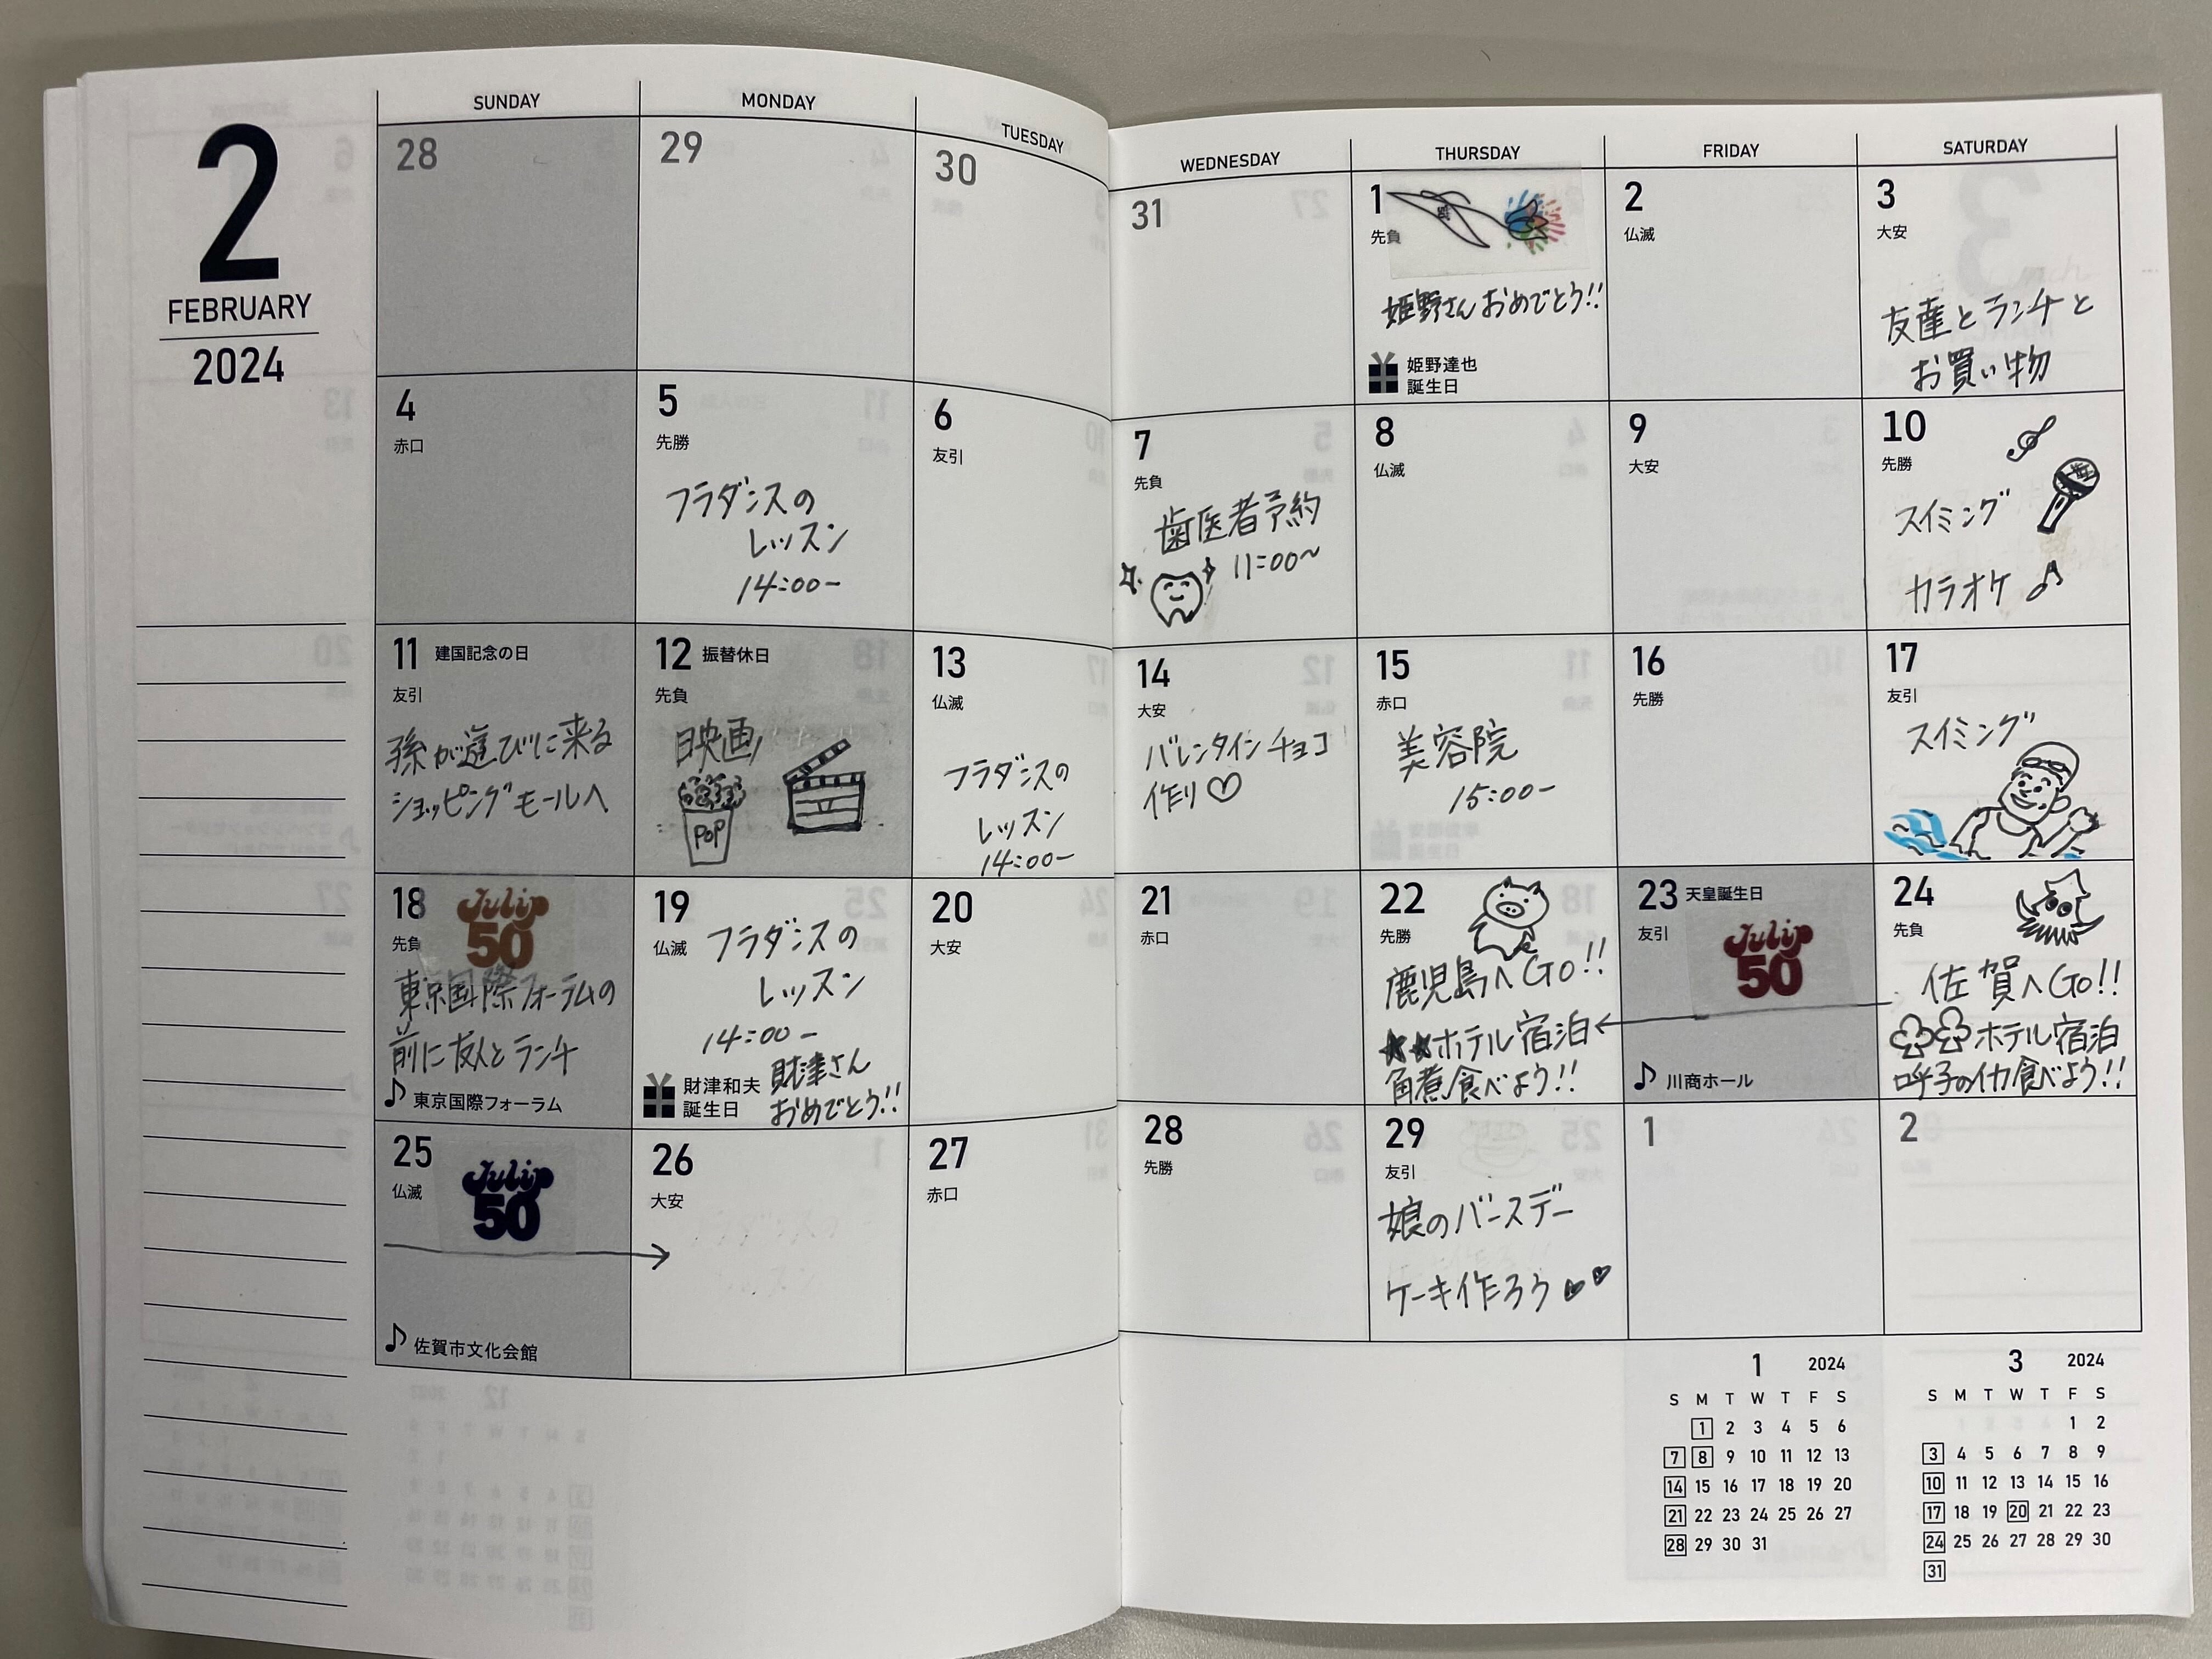 2
FEBRUARY
2024
SUNDAY
MONDAY
TUESDAY
WEDNESDAY
THURSDAY
FRIDAY
SATURDAY
28
29
30
31
1
先負
姫野さんおめでとう!!
姫野達也
誕生日
2
仏滅
3
大安
友達とランチと
お買い物
4
赤口
5
先勝
フラダンスの
レッスン
14:00-
6
友引
7
先負
歯医者予約
11:00~
8
仏滅
9
大安
10
先勝
スイミング
カラオケ♪
11 建国記念の日
友引
孫が遊びに来る
ショッピングモールへ
12 振替休日
先負
映画
POP
13
仏滅
フラダンスの
レッスン
14:00-
14
大安
バレンタインチョコ
作り♡
15
赤口
美容院
15:00-
16
先勝
17
友引
スイミング
18
先負
Julip
50
東京国際フォーラムの
前に友人とランチ
♪ 東京国際フォーラム
19
仏滅
フラダンスの
レッスン
14:00-
財津和夫
誕生日
財津さん
おめでとう!!
20
大安
21
赤口
22
先勝
鹿児島へGo!!
★★ホテル宿泊←
角煮食べよう!!
23 天皇誕生日
友引
Julip
50
♪ 川商ホール
24
先負
佐賀へGo!!
ホテル宿泊
呼子のイカ食べよう!!
25
仏滅
Julip
50
→
♪ 佐賀市文化会館
26
大安
27
赤口
28
先勝
29
友引
娘のバースデー
ケーキ作ろう♥♥
1
2
1 2024
S M T W T F S
1 2 3 4 5 6
7 8 9 10 11 12 13
14 15 16 17 18 19 20
21 22 23 24 25 26 27
28 29 30 31
3 2024
S M T W T F S
1 2
3 4 5 6 7 8 9
10 11 12 13 14 15 16
17 18 19 20 21 22 23
24 25 26 27 28 29 30
31